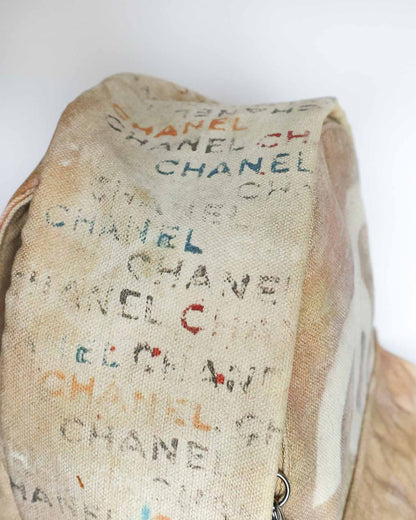 CHANEL CHA
CHANEL
CHANEL CH
CHANEL
CHA
CHANEL
CHANEL
CHANEL
CHANEL CHAN
NEL CHAN
CHANEL CH
CHANEL
CHA
HANEL